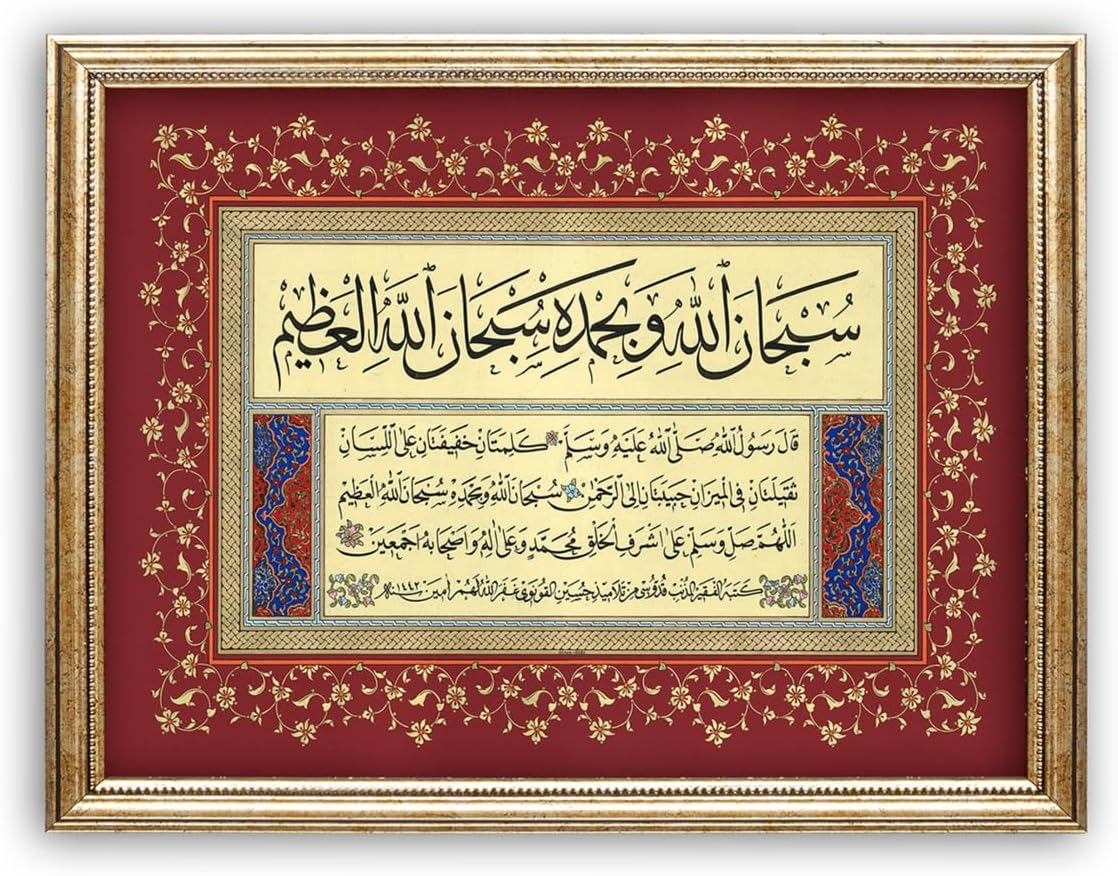 سُبْحَانَ ٱللَّهِ وَبِحَمْدِهِ سُبْحَانَ ٱللَّهِ الْعَظِيمِ
قَالَ رَسُولُ اللّٰهِ صَلَّى اللّٰهُ عَلَيْهِ وَسَلَّمَ كَلِمَتَانِ خَفِيفَتَانِ عَلَى اللِّسَانِ
ثَقِيلَتَانِ فِي الْمِيزَانِ حَبِيبَتَانِ إِلَى الرَّحْمٰنِ سُبْحَانَ اللّٰهِ وَبِحَمْدِهِ سُبْحَانَ اللّٰهِ الْعَظِيمِ
اَللّٰهُمَّ صَلِّ وَسَلِّمْ عَلَى اَشْرَفِ الْخَلْقِ مُحَمَّدٍ وَعَلَى اٰلِهِ وَاَصْحَابِهِ اَجْمَعِينَ
كَتَبَهُ الْفَقِيرُ الْمُذْنِبُ قُدُّوسِى مِنْ تَلَامِيذِ حُسَيْنِ الْقُونَوِى غَفَرَ اللّٰهُ لَهُمْ اٰمِينَ ١٤٤٣